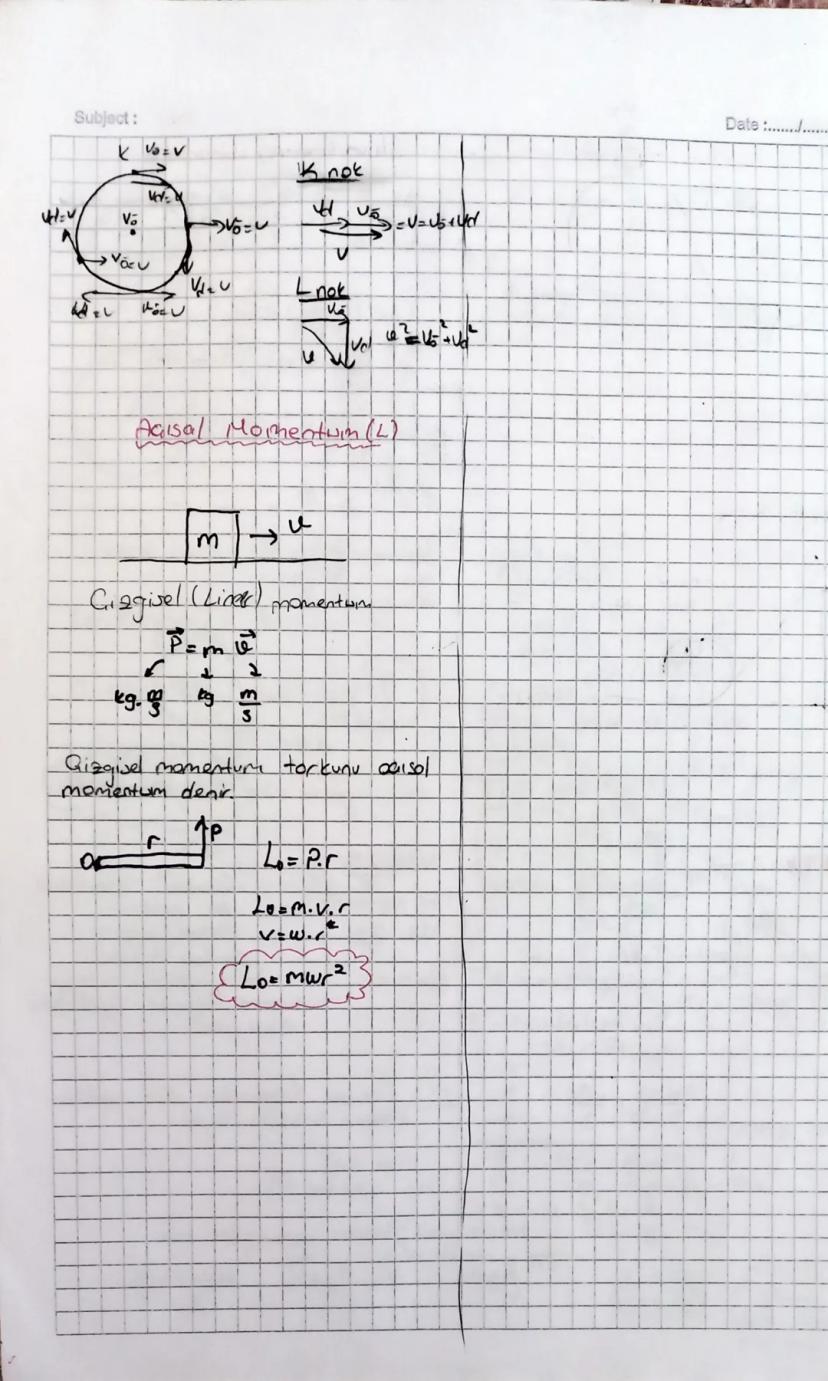 Subject :
Date :....../......
K Vö=V
Vd=V
Vd=V
Vö
Vö=V
Vö=V
Vd=V
Vd=V Vö=V
K not
Vd Vö =V=Vö+Vd
V
L not
Vö
Vd
V
V²=Vö²+Vd²
Açısal Momentum (L)
m
V
Çizgisel (Lineer) momentum
P = m V
kg.m/s kg m/s
Çizgisel momentum torkunu açısal
momentum denir.
O r P
L₀=P.r
L₀=m.v.r
v=w.r
L₀=mwr²